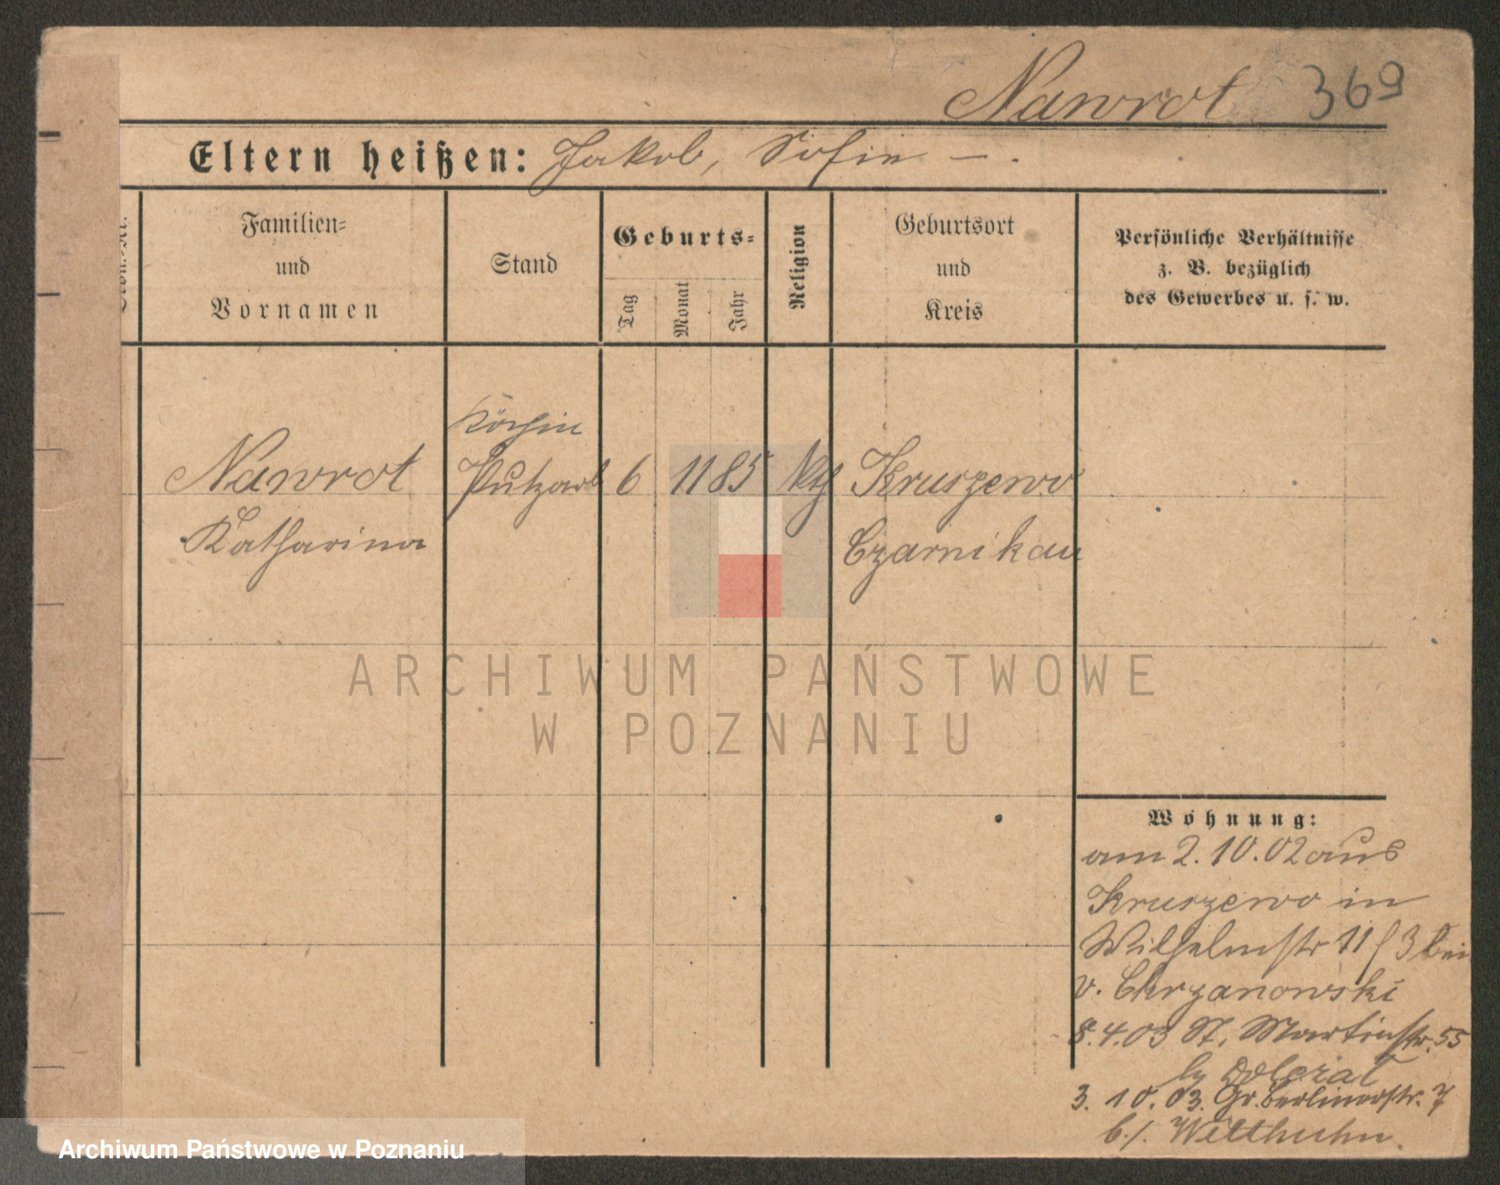 Nawrot 369
Eltern heißen: Jakob, Sofie — .
Familien=
und
Vornamen
Stand
Geburts=
Tag
Monat
Jahr
Religion
Geburtsort
und
Kreis
Persönliche Verhältnisse
z. B. bezüglich
des Gewerbes u. s. w.
Köchin
Nawrot
Putzarb
6
11
85
kth
Kruszewo
Katharina
Czarnikau
ARCHIWUM PAŃSTWOWE
W POZNANIU
Wohnung:
am 2.10.02 aus
Kruszewo in
Wilhelmstr 11 / 3 bei
v. Chrzanowski
8.4.03 St. Martinstr. 55
3. 10. 03. Gr. Berlinerstr. 7
b./. Witthuhn.
Archiwum Państwowe w Poznaniu